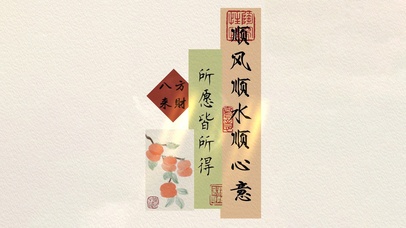 顺风顺水顺心意
所愿皆所得
八方
来财